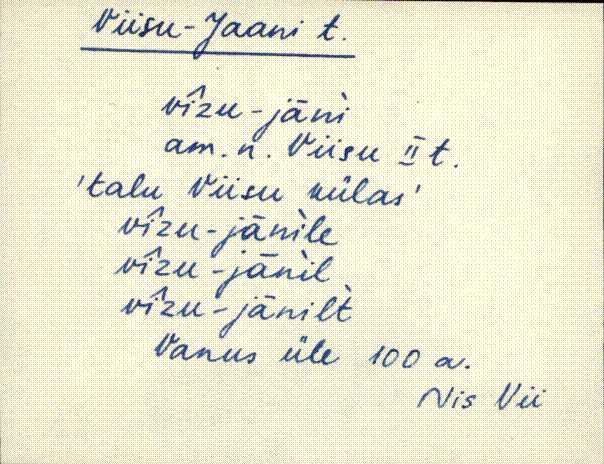 Viisu-Jaani t.
vîzu-jāǹi
am. n. Viisu II t.
'talu Viisu külas'
vîzu-jāǹile
vîzu-jāǹil
vîzu-jāǹilt
Vanus üle 100 a.
Nis Vii